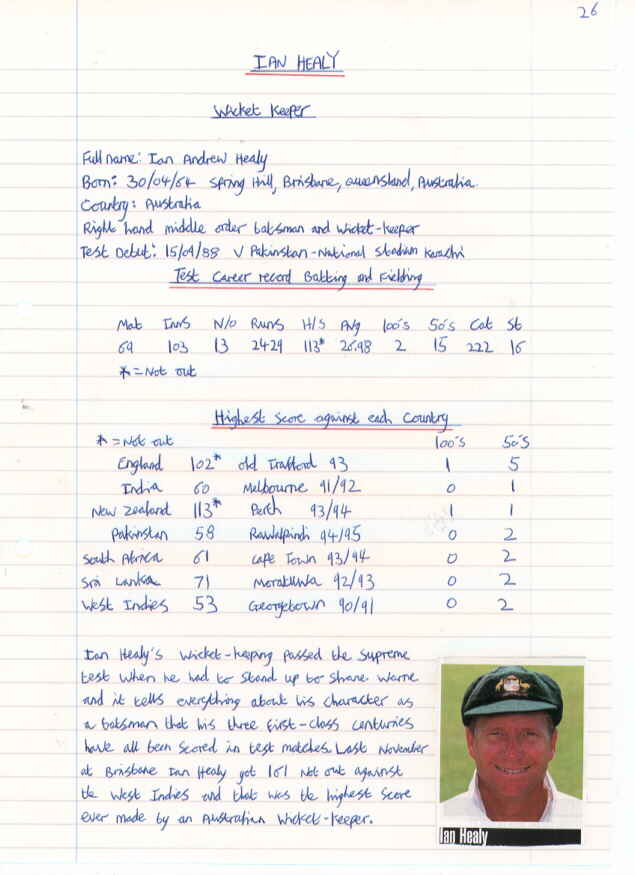 26
IAN HEALY
Wicket Keeper
Full name: Ian Andrew Healy
Born: 30/04/64 Spring Hill, Brisbane, Queensland, Australia.
Country: Australia
Right hand middle order batsman and wicket-keeper
Test Debut: 15/09/88 V Pakinstan-National Stadium Karachi
Test Career record Batting and Fielding
Mat Inns N/O Runs H/S Avg 100's 50's Cat St
69 103 13 2429 113* 26.98 2 15 222 16
* = Not out
Highest Score against each Country
* = Not out 100's 50's
England 102* Old Trafford 93 1 5
India 60 Melbourne 91/92 0 1
New Zealand 113* Perth 93/94 1 1
Pakinstan 58 Rawalpindi 94/95 0 2
South Africa 61 Cape Town 93/94 0 2
Sri Lanka 71 Moratuwa 92/93 0 2
West Indies 53 Georgetown 90/91 0 2
Ian Healy's wicket-keeping passed the supreme
test when he had to stand up to Shane Warne
and it tells everything about his character as
a batsman that his three first-class centuries
have all been scored in test matches. Last November
at Brisbane Ian Healy got 161 not out against
the West Indies and that was the highest score
ever made by an Australian wicket-keeper.
Ian Healy